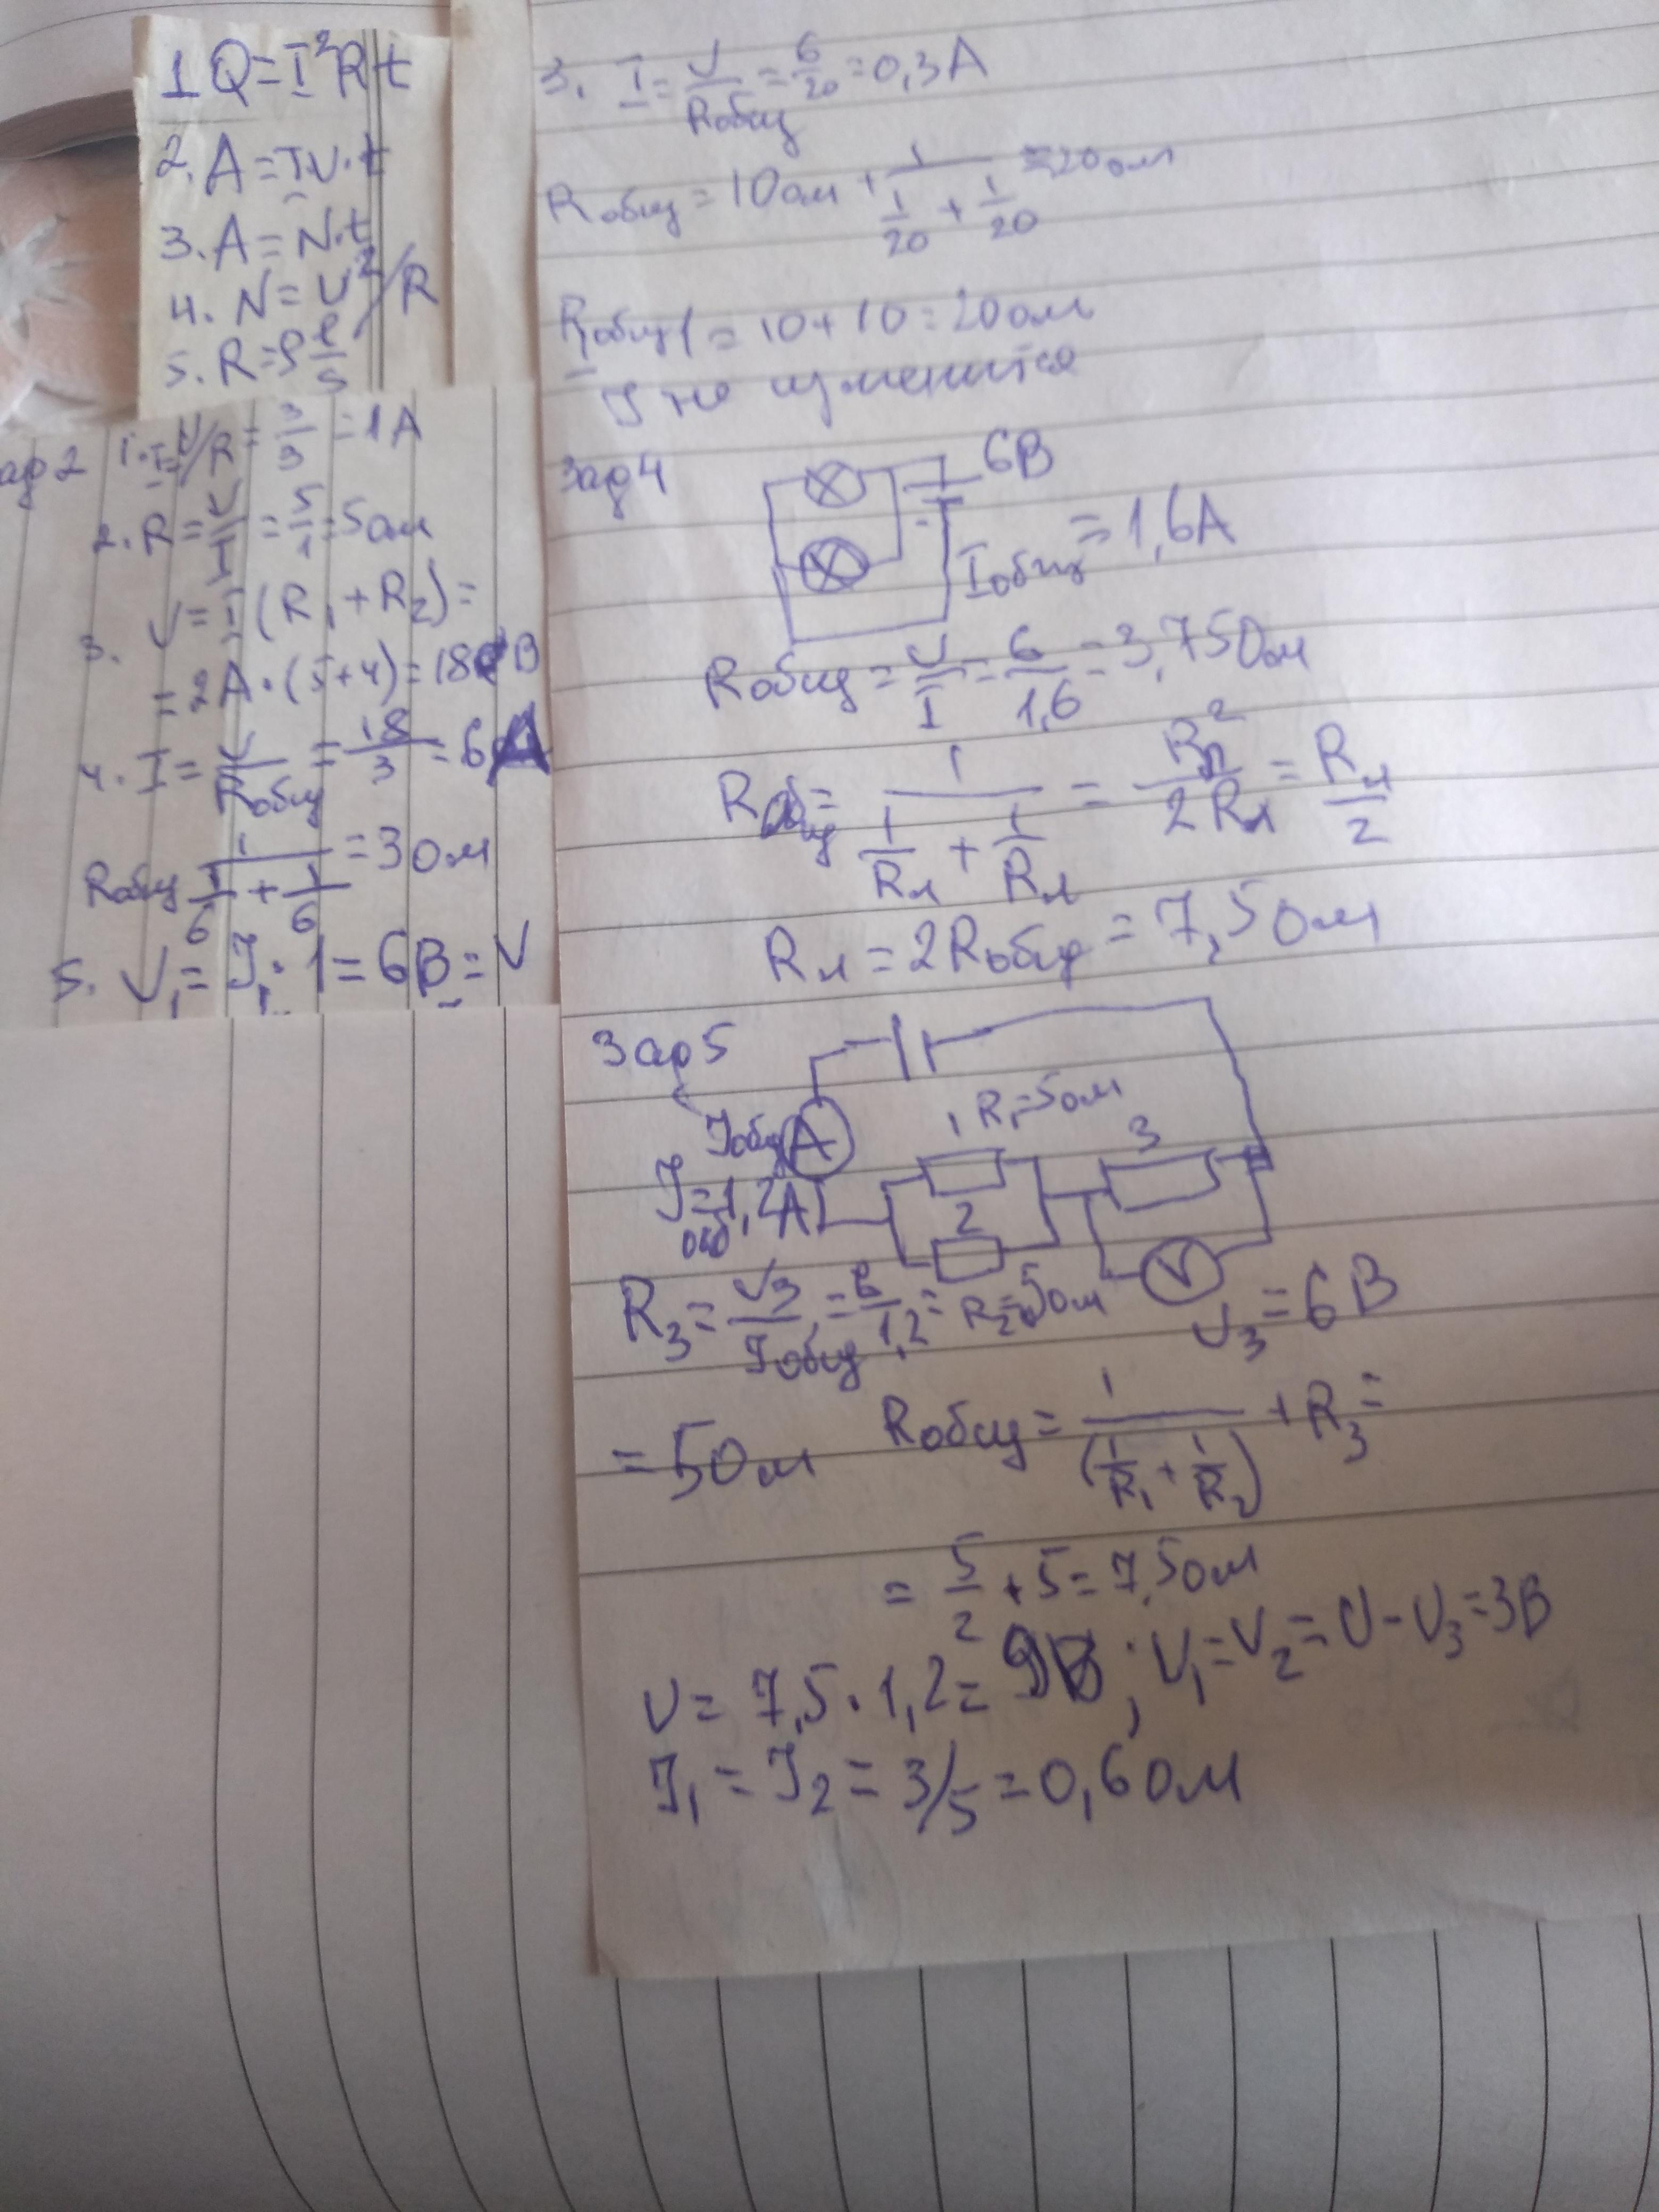 1 Q=I²Rt
2. A=I·U·t
3. A=N·t
4. N=U²/R
5. R=ρ l/S
зад 2 1. I=U/R=3/3=1A
2. R=U/I=5/1=5ом
3. U=I(R₁+R₂)=
=2A·(5+4)=18В
4. I=U/Rобщ=18/3=6A
Rобщ 1/(1/6+1/6)=3ом
5. U₁=I₁·1=6В=U
3. I=U/Rобщ=6/20=0,3A
Rобщ=10ом+1/(1/20+1/20)=20ом
Rобщ1=10+10=20ом
I не изменится
Зад4
6В
Iобщ=1,6A
Rобщ=U/I=6/1,6=3,75Ом
Rобщ=1/(1/Rл+1/Rл)=Rл²/2Rл=Rл/2
Rл=2Rобщ=7,5Ом
Зад5
1 R₁=5ом
Iобщ A
3
I=1,2A
общ
2
V
R₂=5ом
U₃=6В
R₃=U₃/Iобщ=6/1,2=
=5Ом
Rобщ=1/(1/R₁+1/R₂)+R₃=
=5/2+5=7,5ом
U=7,5·1,2=9В; U₁=U₂=U-U₃=3В
I₁=I₂=3/5=0,6ом